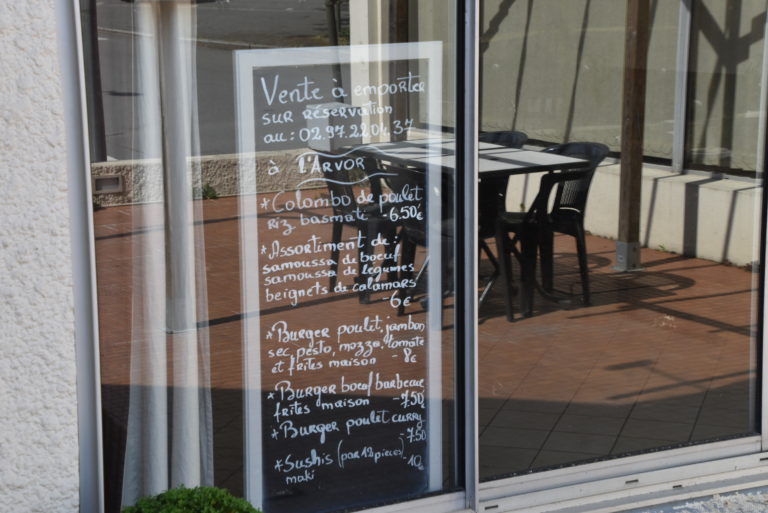 Vente à emporter
sur réservation
au : 02.97.22.04.37
à l'Arvor
* Colombo de poulet
riz basmati - 6.50€
* Assortiment de :
samoussa de boeuf
samoussa de légumes
beignets de calamars
- 6€
* Burger poulet, jambon
sec, pesto, mozza, tomate
et frites maison - 8€
* Burger boeuf barbecue
frites maison - 7.50
* Burger poulet curry
- 7.50
* Sushis (par 12 pièces) - 10€
maki